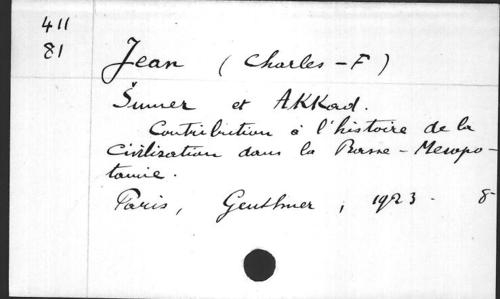 411
81
Jean (Charles-F)
Šumer et Akkad.
Contribution à l'histoire de la
Civilisation dans la Basse-Mesopo-
tamie.
Paris, Geuthner, 1923. 8